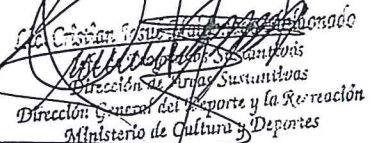 Lic. Cristian Josue
Sustantivas
Dirección de Áreas Sustantivas
Dirección General del Deporte y la Recreación
Ministerio de Cultura y Deportes